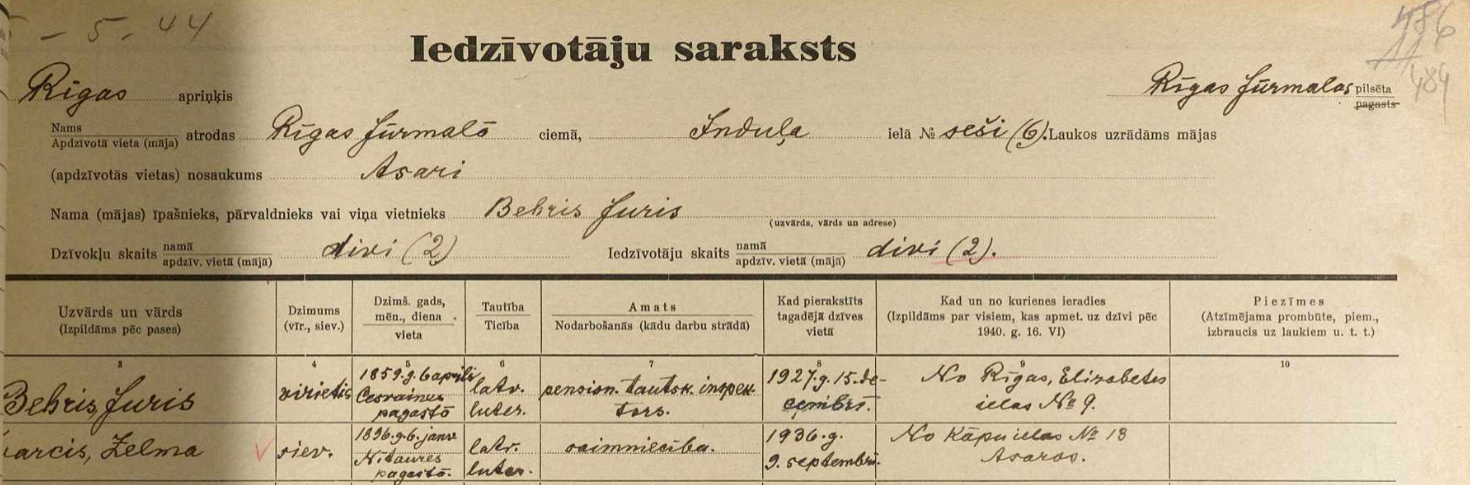 - 5 - 44
486
484
Iedzīvotāju saraksts
Rīgas apriņķis
Rīgas Jūrmalas pilsēta
pagasts
Nams
Apdzīvotā vieta (māja) atrodas Rīgas Jūrmalā ciemā, Induļa ielā № seši (6). Laukos uzrādāms mājas
(apdzīvotās vietas) nosaukums Asari
Nama (mājas) īpašnieks, pārvaldnieks vai viņa vietnieks Behris Juris
(uzvārds, vārds un adrese)
Dzīvokļu skaits namā
apdzīv. vietā (mājā) divi (2) Iedzīvotāju skaits namā
apdzīv. vietā (mājā) divi (2).
Uzvārds un vārds
(Izpildāms pēc pases)
Dzimums
(vīr., siev.)
Dzimš. gads,
mēn., diena
vieta
Tautība
Ticība
Amats
Nodarbošanās (kādu darbu strādā)
Kad pierakstīts
tagadējā dzīves
vietā
Kad un no kurienes ieradies
(Izpildāms par visiem, kas apmet. uz dzīvi pēc
1940. g. 16. VI)
Piezīmes
(Atzīmējama prombūte, piem.,
izbraucis uz laukiem u. t. t.)
3 4 5 6 7 8 9 10
Behris, Juris
vīrietis
1859.g. 6 aprīlī
Cesvaines
pagastā
latv.
luter.
pension. tautsk. inspek-
tors.
1927.g. 15. de-
cembrī.
No Rīgas, Elizabetes
ielas № 9.
Zelma
siev.
1896.g. 6. janv.
Nītaures
pagastā.
latv.
luter.
saimniecība.
1936.g.
9. septembrī.
No Kāpu ielas № 18
Asaros.